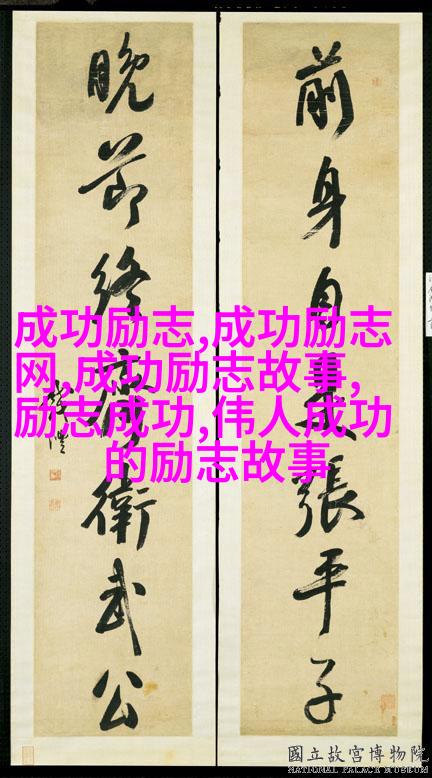 前身自張平子
晚節終衛武公
成功励志,成功励志
网,成功励志故事,
励志成功,伟人成功
的励志故事
國立故宮博物院
NATIONAL PALACE MUSEUM